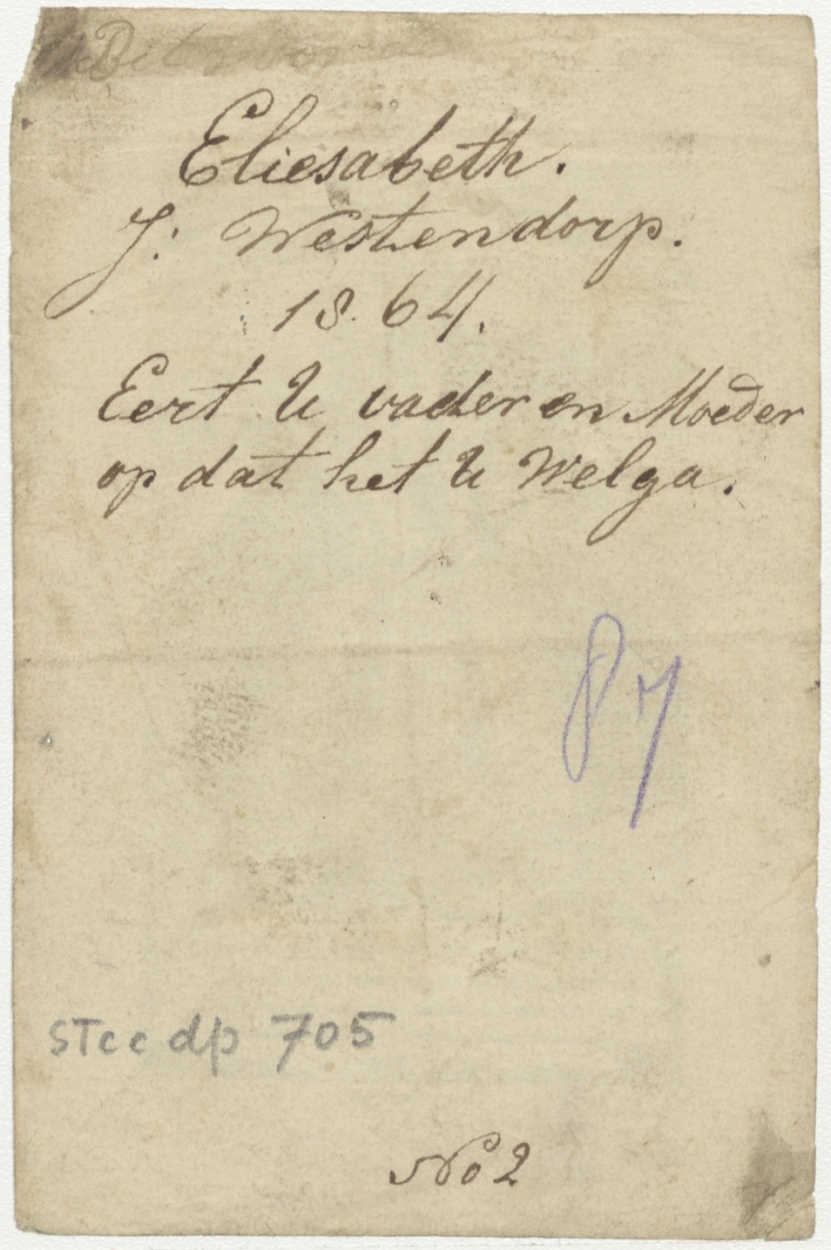 Eliesabeth.
J: Westendorp.
1864.
Eert U vader en Moeder
op dat het U Welga.
87
STcc dp 705
No 2